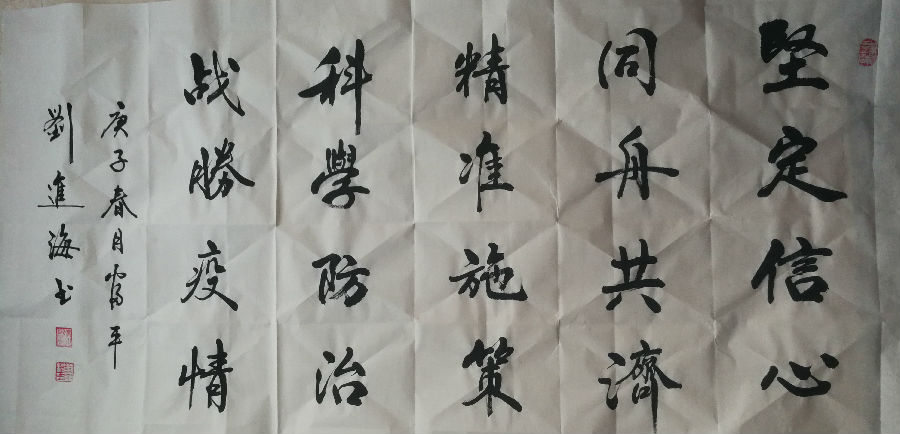 堅定信心
同舟共濟
精准施策
科學防治
战勝疫情
庚子春月富平
劉進海书